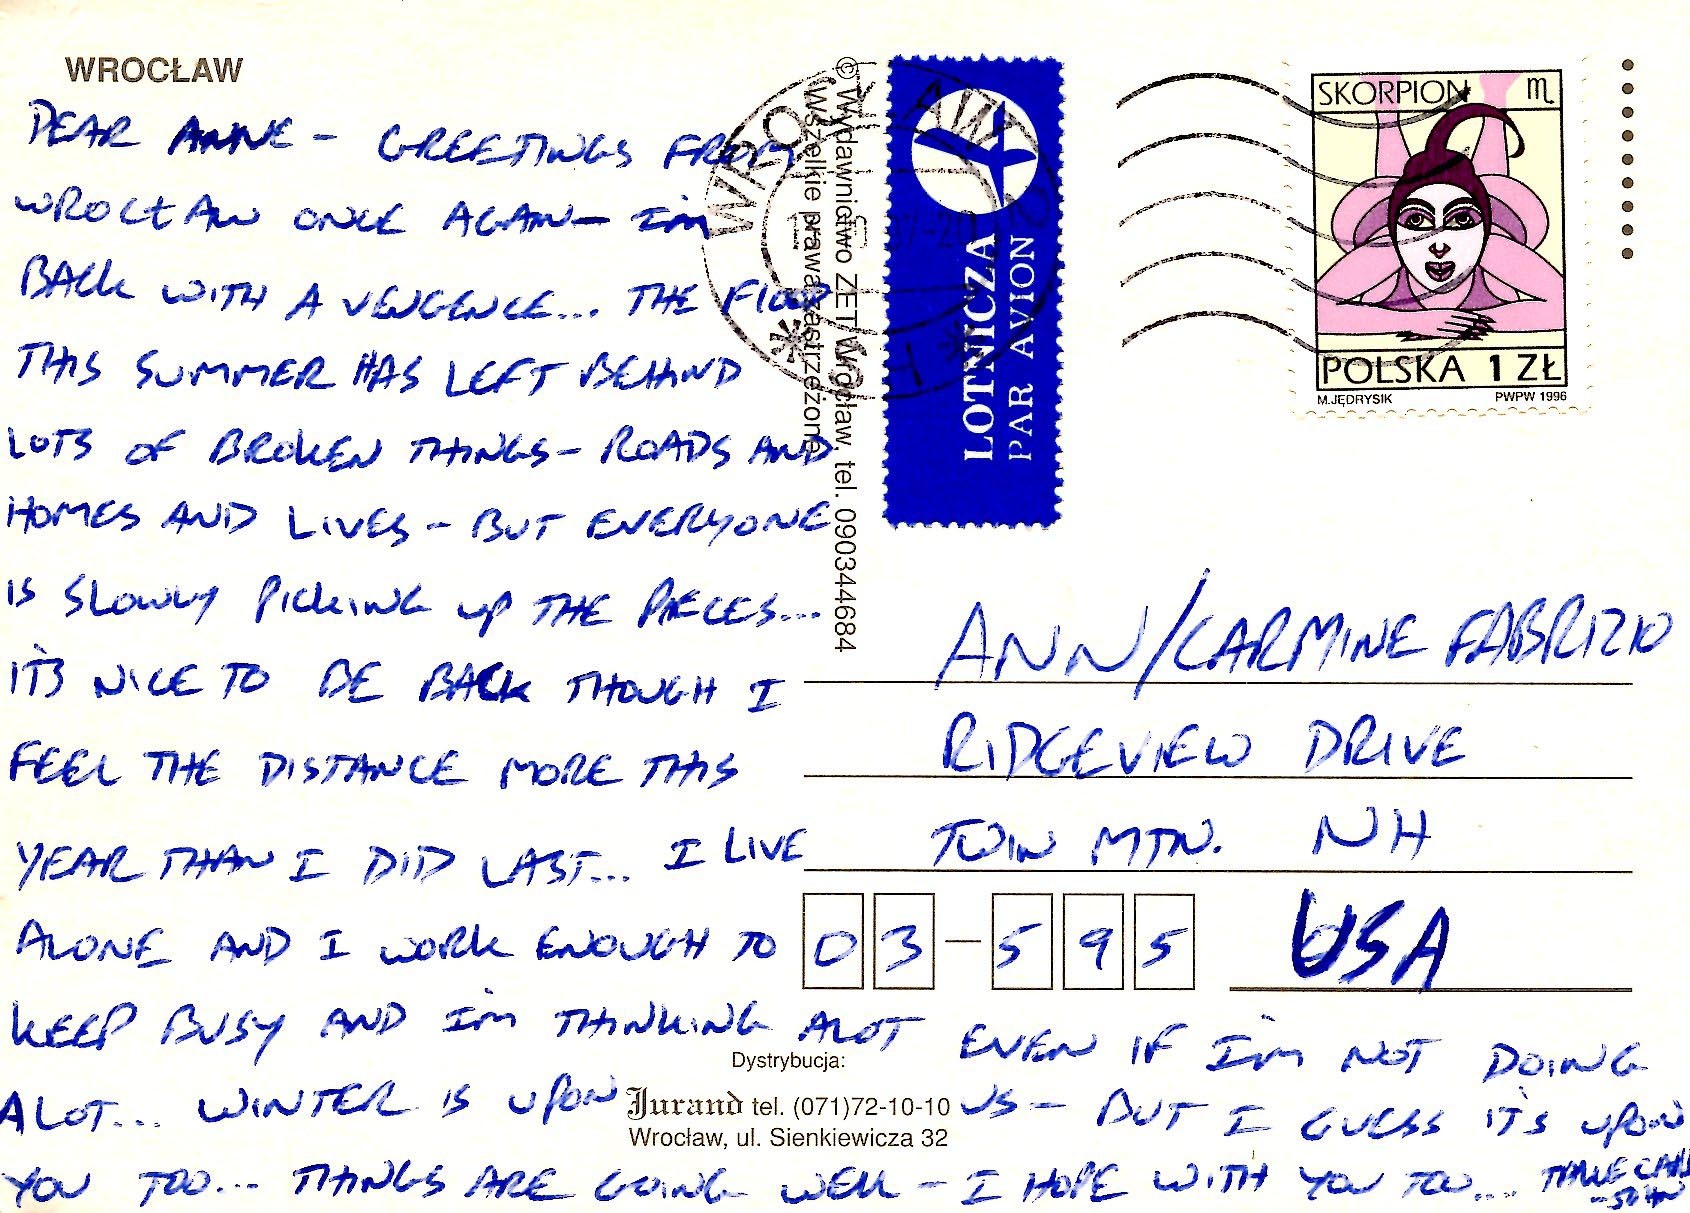 WROCŁAW
DEAR ANNE - GREETINGS FROM
WROCŁAW ONCE AGAIN - I'M
BACK WITH A VENGENCE... THE FLOOD
THIS SUMMER HAS LEFT BEHIND
LOTS OF BROKEN THINGS - ROADS AND
HOMES AND LIVES - BUT EVERYONE
IS SLOWLY PICKING UP THE PIECES...
IT'S NICE TO BE BACK THOUGH I
FEEL THE DISTANCE MORE THIS
YEAR THAN I DID LAST... I LIVE
ALONE AND I WORK ENOUGH TO
KEEP BUSY AND I'M THINKING ALOT EVEN IF I'M NOT DOING
ALOT... WINTER IS UPON US - BUT I GUESS IT'S UPON
YOU TOO... THINGS ARE GOING WELL - I HOPE WITH YOU TOO... TAKE CARE
- JOHN
© Wydawnictwo ZET Wrocław, tel. 090344684
Wszelkie prawa zastrzeżone
WROCŁAW
LOTNICZA
PAR AVION
SKORPION ♏
POLSKA 1 ZŁ
M.JĘDRYSIK PWPW 1996
ANN/CARMINE FABRIZIO
RIDGEVIEW DRIVE
TWIN MTN. NH
03-595 USA
Dystrybucja:
Jurand tel. (071)72-10-10
Wrocław, ul. Sienkiewicza 32